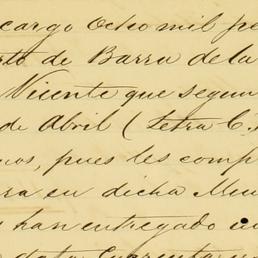 cargo Ocho mil pe
rto de Barra de la
Vicente que segun
de Abril (Letra C.)
nos, pues les comp
ra en dicha Mun
han entregado en
data Cuarenta y